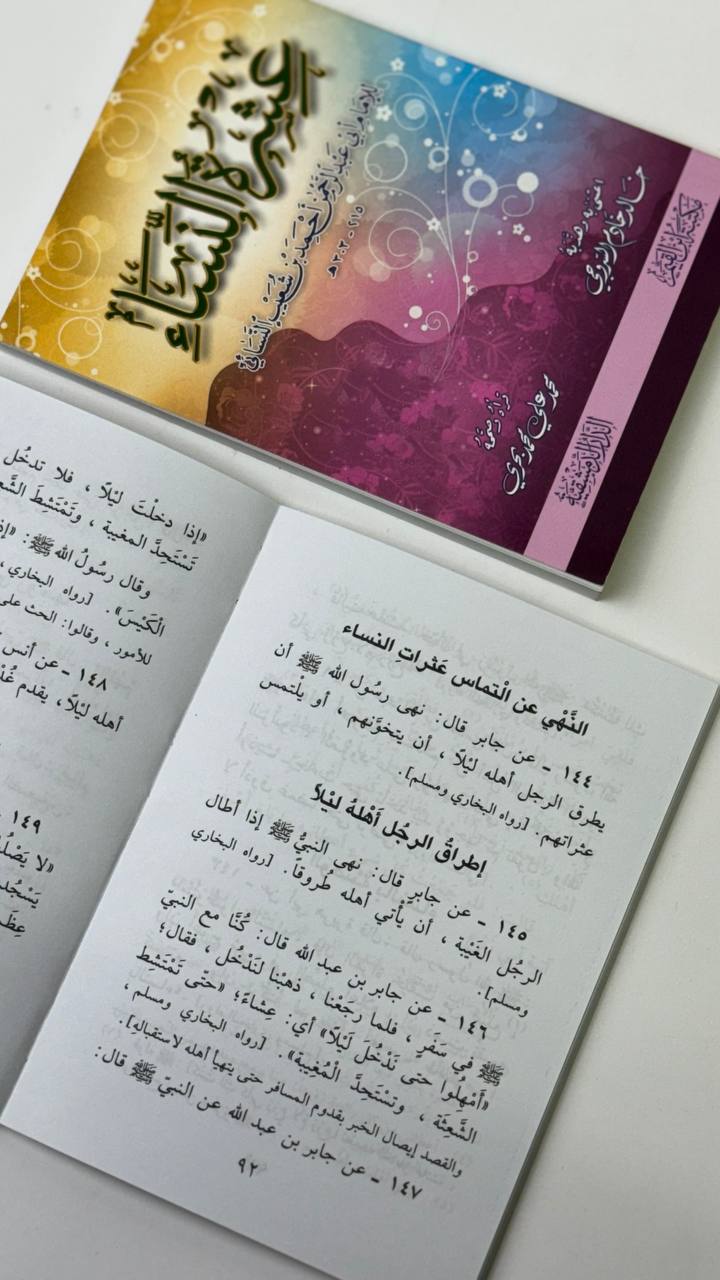 عِشْرَةُ النِّسَاءِ
للإمام أبي عبد الرحمن أحمد بن شعيب النسائي
٢١٥ - ٣٠٣ هـ
اعتنى به وهذبه
خالد خادم السروجي
محمد علي محمد بحري
مكتبة ابن القيم
النَّهْي عن الْتماس عَثراتِ النساء
١٤٤ - عن جابر قال: نهى رسُول الله ﷺ أن
يطرق الرجل أهله ليْلًا ، أن يتخوَّنهم ، أو يلْتمس
عثراتهم. [رواه البخاري ومسلم].
إطراقُ الرجُل أَهْلهُ ليْلاً
١٤٥ - عن جابرٍ قال: نهى النبيُّ ﷺ إذا أطال
الرجُل الغَيْبة ، أن يأْتي أهله طُروقاً. [رواه البخاري
ومسلم].
١٤٦ - عن جابر بن عبد الله قال: كُنَّا مع النبيّ
ﷺ في سَفَرٍ ، فلما رجَعْنا ، ذهبْنا لنَدْخُل ، فقال؛
«أَمْهِلُوا حتى نَدْخُلَ لَيْلًا» أي: عِشاءً؛ «حتّى تَمْتَشِطَ
الشَّعِثَة ، وتسْتَحِدَّ الْمُغِيبة». [رواه البخاري ومسلم ،
والقصد إيصال الخبر بقدوم المسافر حتى يتهيأ أهله لاستقباله].
١٤٧ - عن جابر بن عبد الله عن النبيّ ﷺ قال:
٩٢
«إذا دخلْتَ ليْلًا ، فلا تدخُل
تَسْتَحِدَّ المغيبة ، وتَمْتَشِطَ
وقال رسُولُ الله ﷺ:
الْكَيْسَ». [رواه البخاري ،
للأمور ، وقالوا: الحث على
١٤٨ - عن أنس
أهله ليْلًا ، يقدم
١٤٩
«لا يَصْلُ